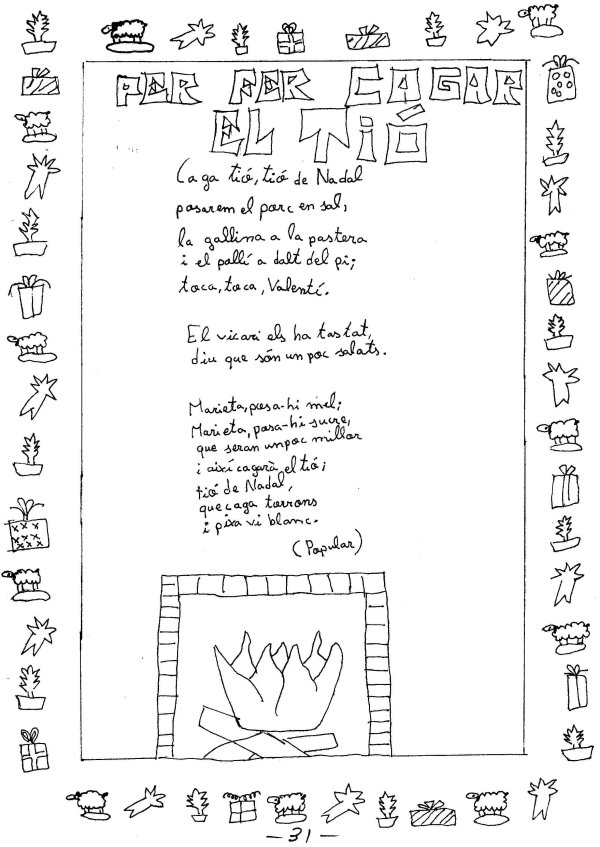 PER FER CAGAR
EL TIÓ
Caga tió, tió de Nadal
posarem el porc en sal;
la gallina a la pastera
i el pollí a dalt del pi;
toca, toca, Valentí.
El vicari els ha tastat,
diu que són un poc salats.
Marieta, posa-hi mel;
Marieta, posa-hi sucre,
que seran un poc millor
i així cagarà el tió;
tió de Nadal,
que caga torrons
i pixa vi blanc.
(Popular)
-31-